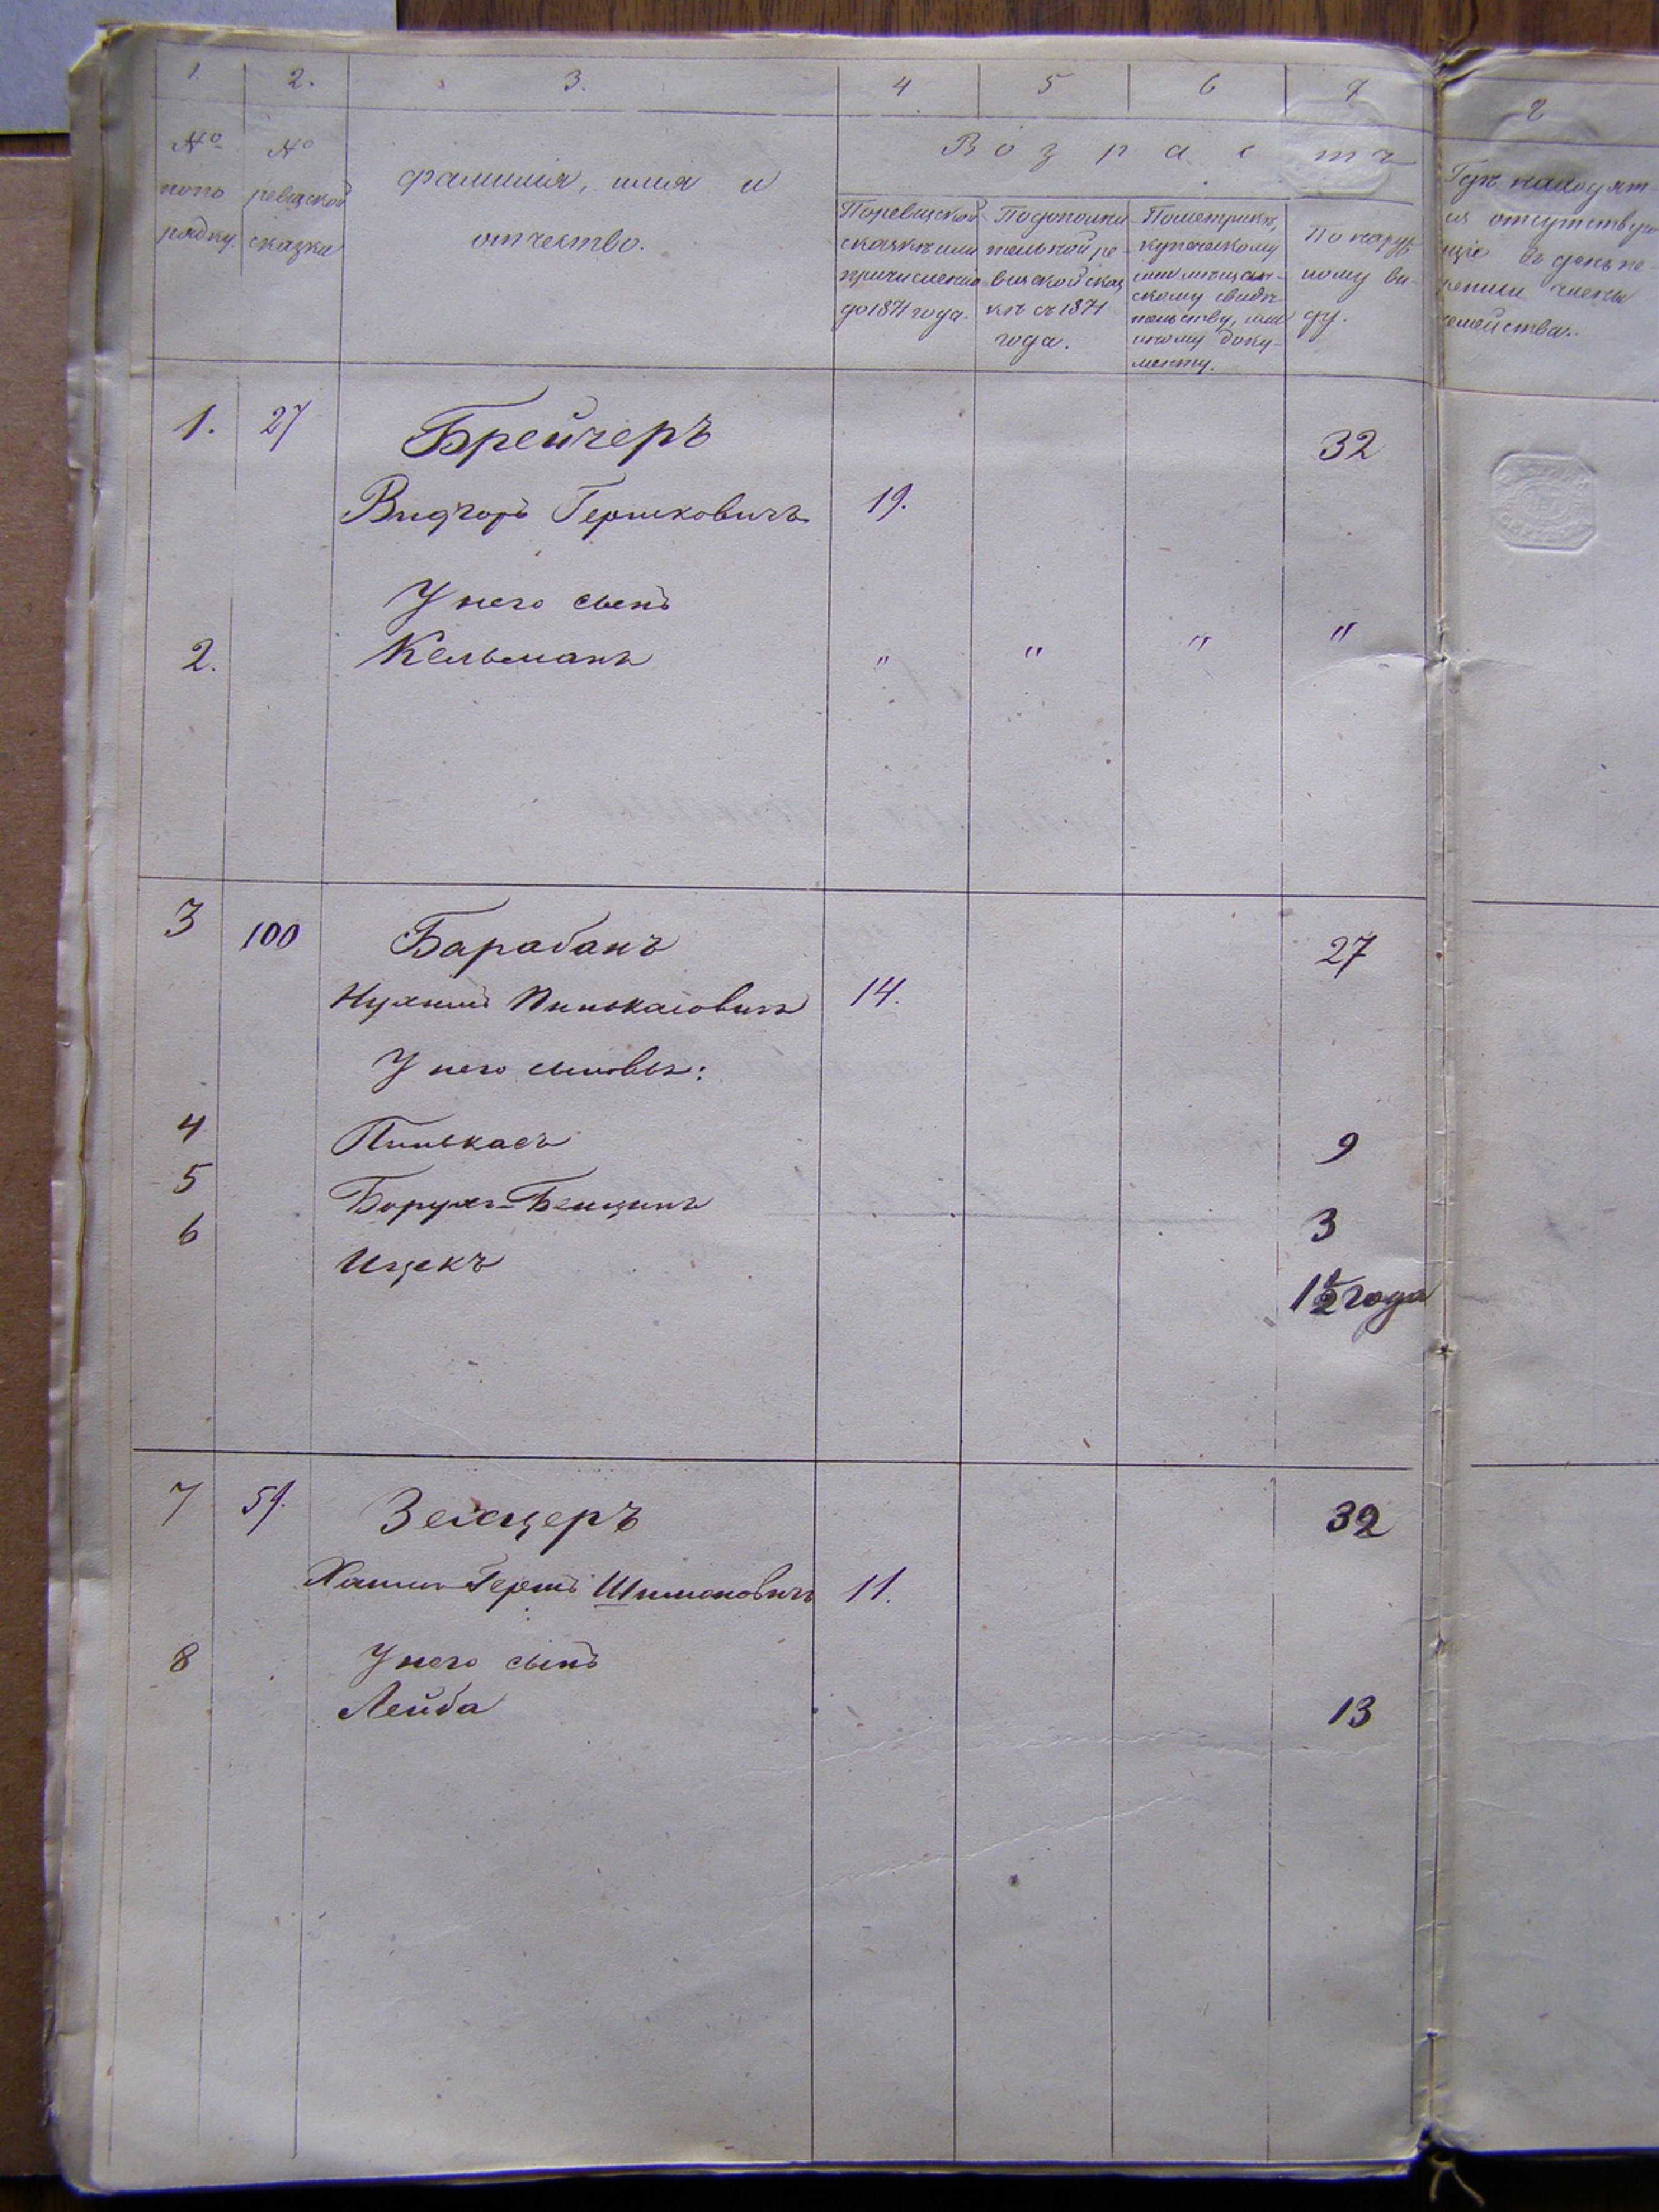 1. 2. 3. 4 5 6 7 8
№ по по рядку.
№ ревизской сказки
фамилия, имя и отчество.
Возрастъ
По ревизской сказкѣ или причислению до 1874 года.
По дополнительной ревизской сказкѣ съ 1874 года.
По метрикѣ, купеческому или мѣщанскому свидѣтельству, или иному документу.
По наружному виду.
Гдѣ находятся отсутствующіе въ день переписи члены семейства.
1. 27 Брейчеръ 32
Видгоръ Гершковичъ 19.
У него сынъ
2. Кельманъ " " " "
3 100 Барабанъ 27
Нухимъ Пинькасовичъ 14.
У него сыновья:
4 Пинькасъ 9
5 Борухъ-Бенционъ 3
6 Ицекъ 1½ года
7 59. Зельцеръ 32
Хаимъ-Гершъ Шимоновичъ 11.
8 У него сынъ
Лейба 13